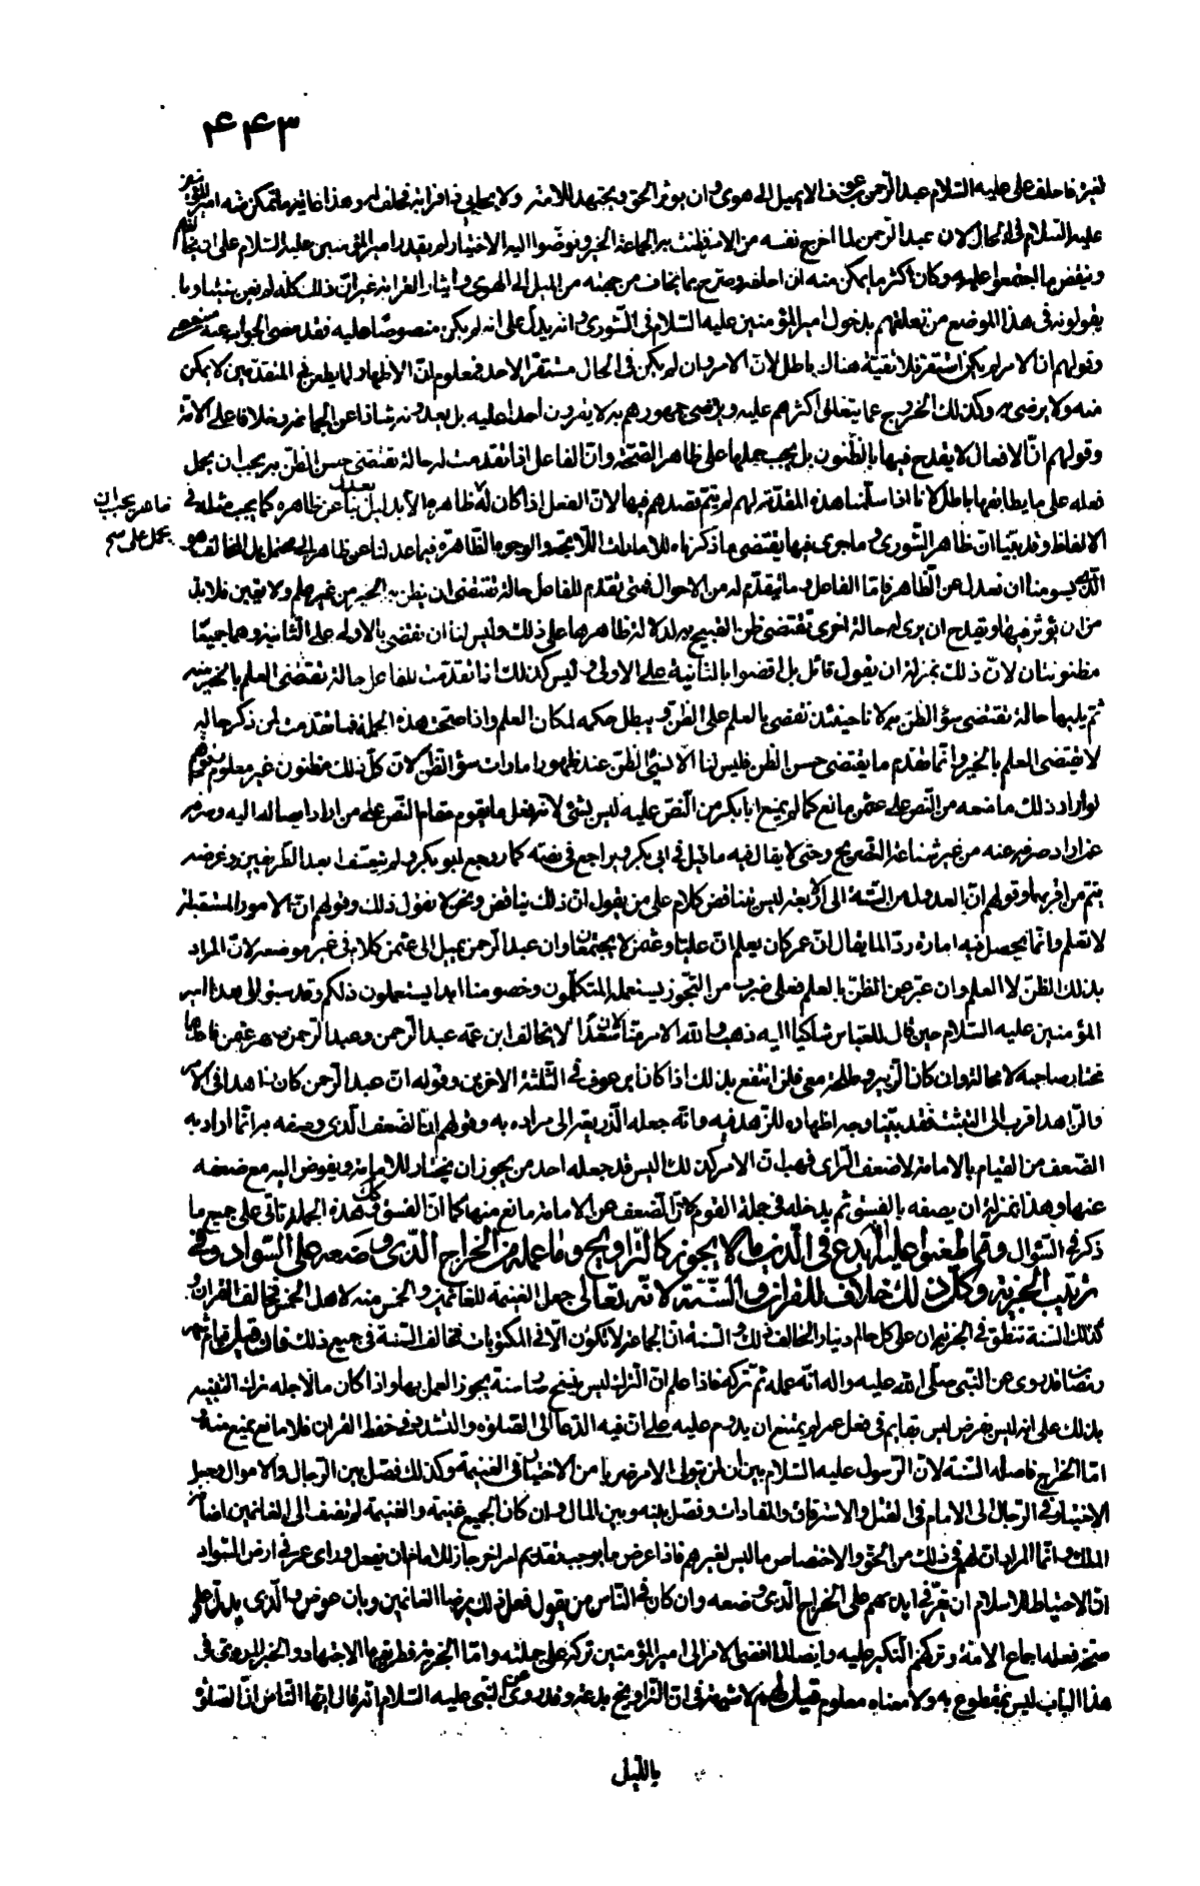 ۴۴۳
لغيره فاحلف علي عليه السلام عبد الرحمن بن عوف ان لا يميل الى هوى وان يؤثر الحق ويجتهد للامة ولا يحابي ذا قرابة فحلف له وهذا غاية ما تمكن منه امير المؤمنين
عليه السلام في الحال لان عبد الرحمن لما اخرج نفسه من الامر فظنت به الجماعة الخير وفوضوا اليه الاختيار لم يقدر امير المؤمنين عليه السلام على ان يخالفهم
وينقض ما اجتمعوا عليه وكان اكثر ما تمكن منه ان احلفه وصرح بما يخاف من جهته من الميل الى الهوى وايثار القرابة غير ان ذلك كله لم يغن شيئا وما
يقولونه في هذا الموضع من تعلقهم بدخول امير المؤمنين عليه السلام في الشورى وانه يدل على انه لم يكن منصوصا عليه فقد مضى الجواب عنه
وقولهم ان الامر لم يكن استقر فلا تقية هناك باطل لان الامر وان لم يكن في الحال مستقرا لاحد فمعلوم ان الاظهار لما يطعن في المتقدمين لا يمكن
منه ولا يرضى به وكذلك الخروج عما يتفق اكثرهم عليه ويرضى جمهورهم به لا يقرون احدا عليه بل يعدونه شاذا عن الجماعة وخلافا على الامة
وقولهم ان الافعال لا يقدح فيها بالظنون بل يجب حملها على ظاهر الصحة وان الفاعل اذا تقدمت له حالة تقتضي حسن الظن به يجب ان يحمل
فعله على ما يطابقها باطل لانا اذا سلمنا هذه المقدمة لهم لم يتم قصدهم فيها لان الفعل اذا كان له ظاهر
ظاهر يجب ان
يحمل على
الالفاظ وقد بينا ان ظاهر الشورى وما جرى فيها يقتضي ما ذكرناه للامارات اللائحة والوجوه الظاهرة فما عدلنا عن ظاهر الى محتمل بل المخالف هو
الذي يسومنا ان نعدل عن الظاهر فاما الفاعل وما يتقدم له من الاحوال فمتى تقدم للفاعل حالة تقتضي ان يظن به الخير من غير علم ولا يقين فلا بد
من ان يؤثر فيها ويقدح ان يرى له حالة اخرى تقتضي ظن القبيح به لدلالة ظاهرها على ذلك وليس لنا ان نقضي بالاولة على الثانية وهما جميعا
مظنونتان لان ذلك بمنزلة ان يقول قائل بل اقضوا بالثانية على الاولى وليس كذلك اذا تقدمت للفاعل حالة تقتضي العلم بالخير منه
ثم يليها حالة تقتضي سوء الظن به لانا حينئذ نقضي بالعلم على الظن ويبطل حكمه لمكان العلم واذا صحت هذه الجملة فما تقدمت لمن ذكر حالة
لا يقتضي العلم بالخير وانما تقدم ما يقتضي حسن الظن فليس لنا ان لا نسيء الظن عند ظهور امارات سوء الظن لان كل ذلك مظنون غير معلوم
لو اراد ذلك ما منعه من النص على عثمن مانع كما لم يمنع ابا بكر من النص عليه ليس بشيء لانه فعل ما يقوم مقام النص على من اراد ايصاله اليه وصرفه
عمن اراد صرفه عنه من غير شناعة التصريح وحتى لا يقال فيه ما قيل في ابي بكر ويراجع في نصه كما روجع ابو بكر ولم يتعسف ابعد الطريقين وغرضه
يتم من اقربهما وقولهم ان العدول من الستة الى الاربعة ليس بتناقض كلام على من يقول ان ذلك يناقض ونحن لا نقول ذلك وقولهم ان الامور المستقبلة
لا تعلم وانما يحصل فيه امارة ردا لما يقال ان عمر كان يعلم ان عليا وعثمن لا يجتمعان وان عبد الرحمن يميل الى عثمن كلام في غير موضعه لان المراد
بذلك الظن لا العلم وان عبر عن الظن بالعلم فعلى ضرب من التجوز يستعمله المتكلمون وخصومنا ابدا يستعملون ذلك
المؤمنين عليه السلام حين قال للعباس شاكيا اليه ذهب والله الامر منا لان سعدا لا يخالف ابن عمه عبد الرحمن وعبد الرحمن صهر عثمن فاحدهما
مختار صاحبه لا محالة وان كان الزبير وطلحة معي فلن انتفع بذلك اذا كان ابن عوف في الثلثة الاخرين وقوله ان عبد الرحمن كان زاهدا في الامر
والزاهد اقرب الى التثبت فقد بينا وجه اظهاره للزهد فيه وانه جعله الذريعة الى مراده به وقولهم ان الضعف الذي وصفه به انما اراد به
الضعف من القيام بالامامة لا ضعف الراى فهب ان الامر كذلك اليس قد جعله احد من يجوز ان يختار للامامة ويفوض اليه مع ضعفه
عنها وهذا بمنزلة ان يصفه بالفسق ثم يدخله في جملة القوم لان الضعف عن الامامة مانع منها كما ان الفسق كذلك هذه الجملة تاتي على جميع ما
ذكر في السؤال ومما طعنوا عليه انه ابدع في الدين ما لا يجوز كالتراويح وما عمله من الخراج الذي وضعه على السواد وفي
ترتيب الجزية وكل ذلك خلاف للقران والسنة لانه تعالى جعل الغنيمة للغانمين والخمس منه لاهل الخمس فخالف القران و
كذلك السنة تنطق في الجزية ان على كل حالم دينار الخالف ذلك والسنة ان الجماعة لا تكون الا في المكتوبات فخالف السنة في جميع ذلك فان قيل قيام شهر
رمضان فقد روى عن النبي صلى الله عليه واله انه عمله ثم تركه فاذا علم ان الترك ليس بنسخ صار سنة يجوز العمل بها واذا كان ما لاجله ترك التنبيه
بذلك على انه ليس بفرض ليس بقايم في فعل عمر لم يمتنع ان يدوم عليه على ان فيه الدعا الى الصلوة والتشدد في حفظ القران فلا مانع يمنع منه و
اما الخراج فاصله السنة لان الرسول عليه السلام بين ان لمن يتولى الامر ضربا من الاختيار في الغنيمة وكذلك فصل بين الرجال والاموال وجعل
الاختيار في الرجال الى الامام في القتل والاسترقاق والمفادات وفصل بينه وبين المال وان كان الجميع غنيمة والغنيمة لم تضف الى الغانمين اضافة
الملك وانما المراد ان لهم في ذلك من الحق والاختصاص ما ليس لغيرهم فاذا عرض ما يوجب تقديم امر اخر جاز للامام ان يفعل وراى عمر في ارض السواد
ان الاحتياط للاسلام ان يقر في ايديهم على الخراج الذي وضعه وان كان في الناس من يقول فعل ذلك برضا الغانمين وبان عوض والذي يدل على
صحة فعله اجماع الامة وتركهم النكير عليه وايضا لما افضى الامر الى امير المؤمنين تركه على جملته واما الجزية فطريقها الاجتهاد والخبر المروى في
هذا الباب ليس بمقطوع به ولا معناه معلوم قيل لهم لا شبهة في ان التراويح بدعة وقد روى عن النبي عليه السلام انه قال ايها الناس ان الصلوة
بالليل